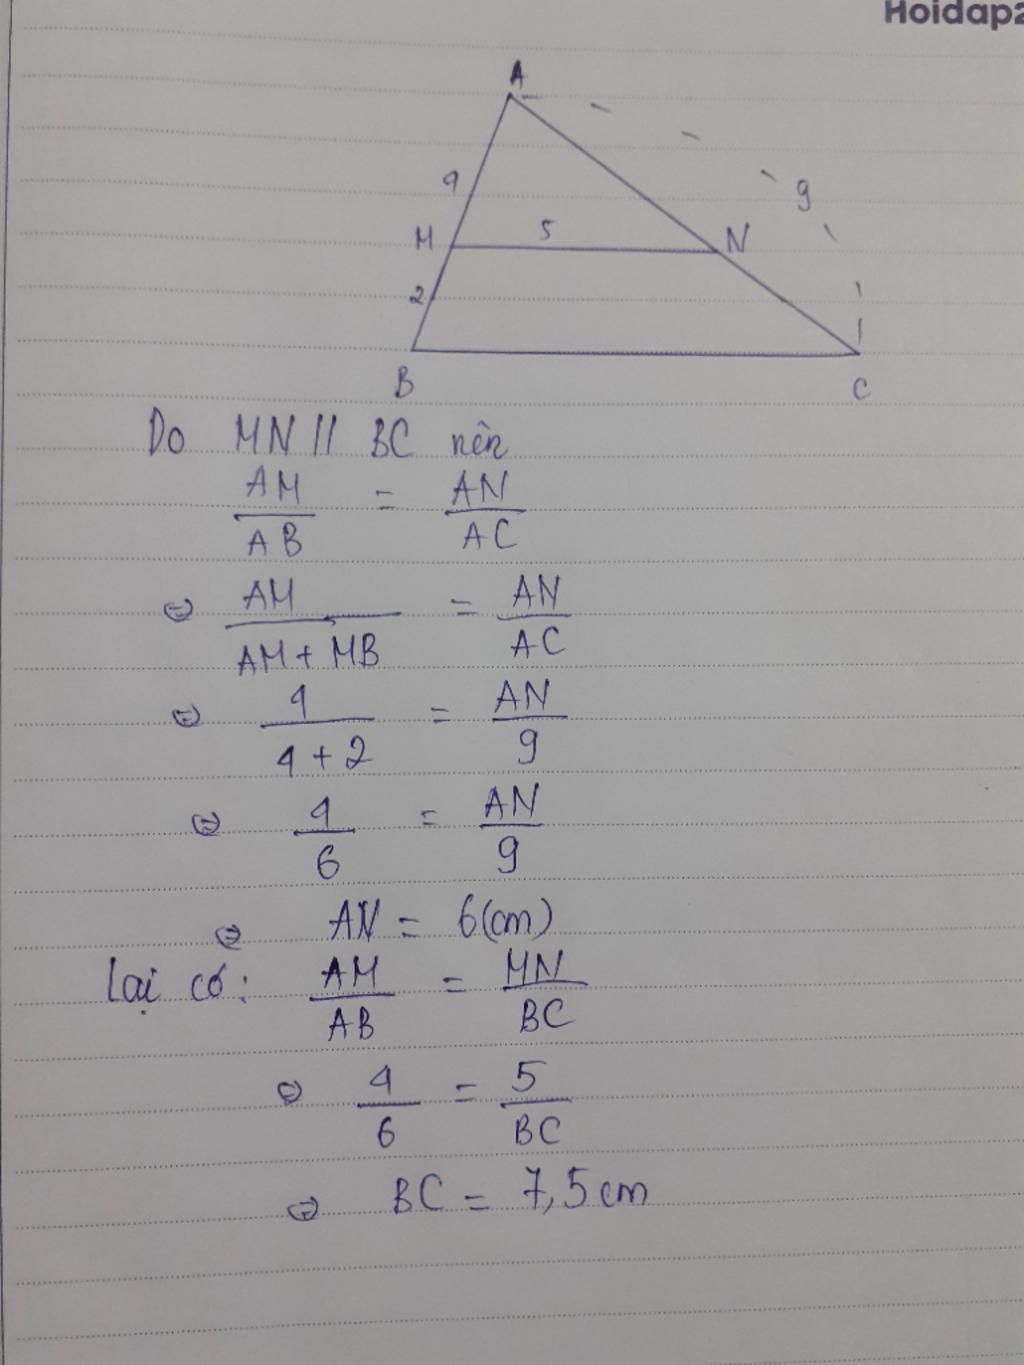 Hoidap2
A
4
9
M 5 N
2
B C
Do MN // BC nên
AM/AB = AN/AC
⇔ AM/AM + MB = AN/AC
⇔ 4/4 + 2 = AN/9
⇔ 4/6 = AN/9
⇔ AN = 6(cm)
Lại có: AM/AB = MN/BC
⇔ 4/6 = 5/BC
⇔ BC = 7,5 cm